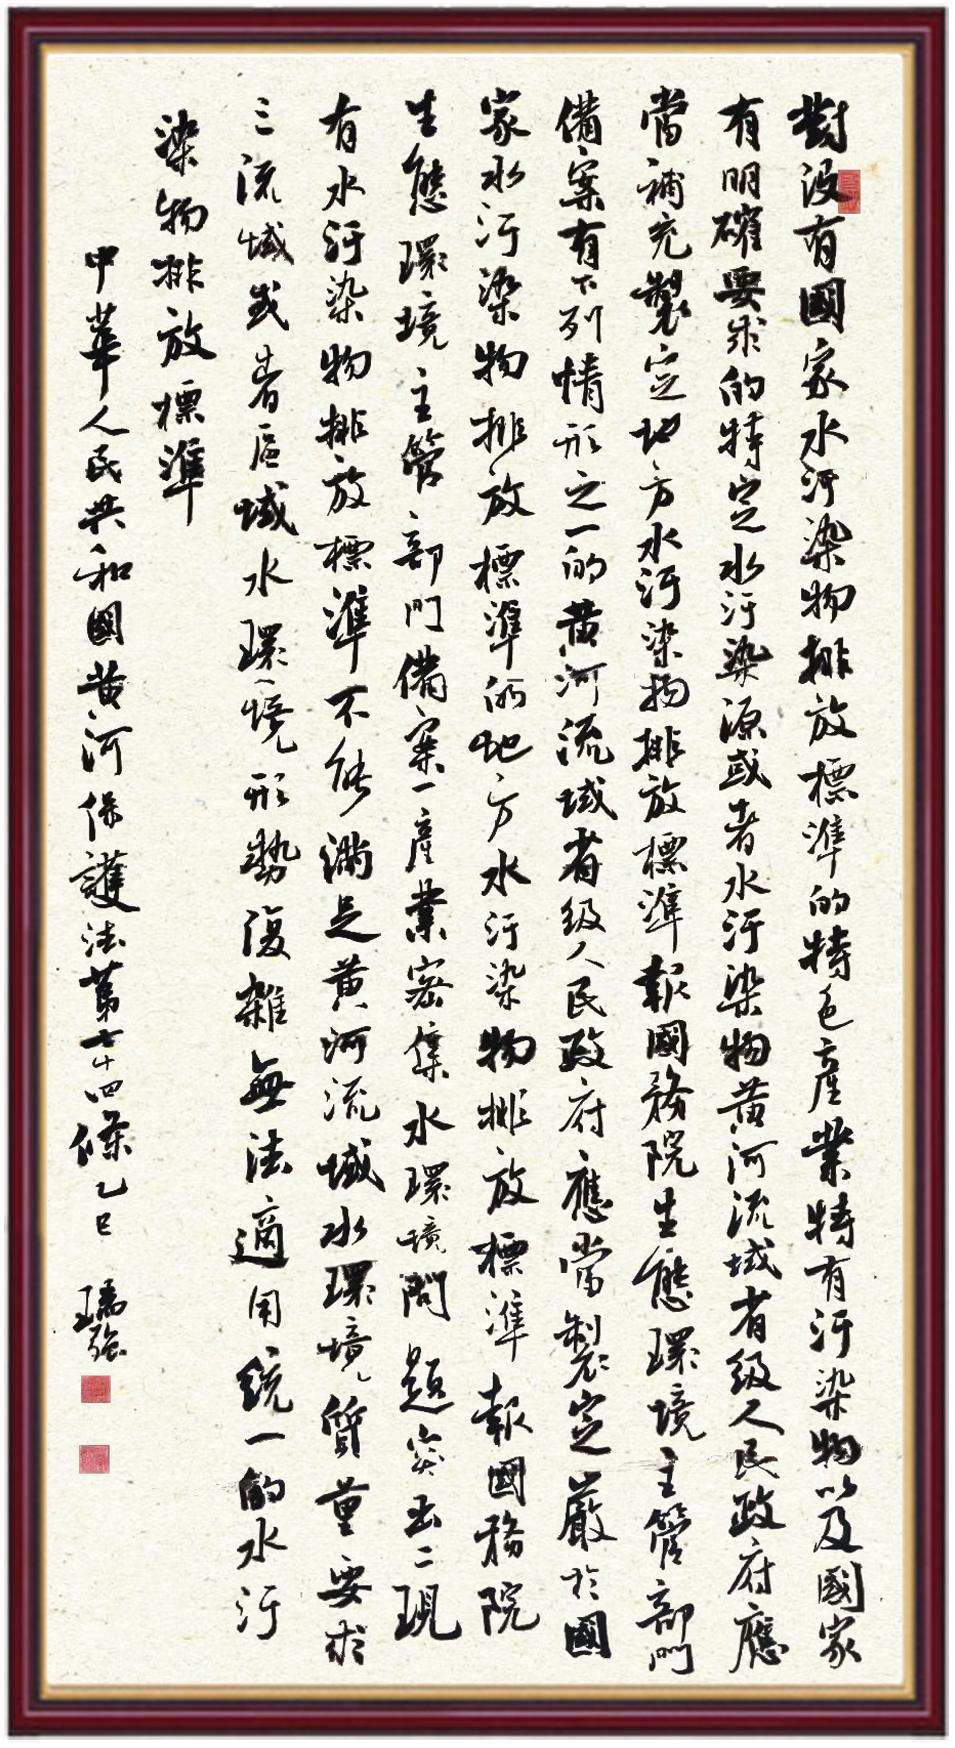 對没有國家水污染物排放標準的特色產業特有污染物以及國家
有明確要求的特定水污染源或者水污染物黄河流域省級人民政府應
當補充製定地方水污染物排放標準報國務院生態環境主管部門
備案有下列情形之一的黄河流域省级人民政府應當製定嚴於國
家水污染物排放標準的地方水污染物排放標準報國務院
生態環境主管部門備案一產業密集水環境問題突出二現
有水污染物排放標準不能滿足黄河流域水環境質量要求
三流域或者區域水環境形勢復雜無法適用統一的水污
染物排放標準
中華人民共和國黄河保護法第七十四條乙巳 瑞強